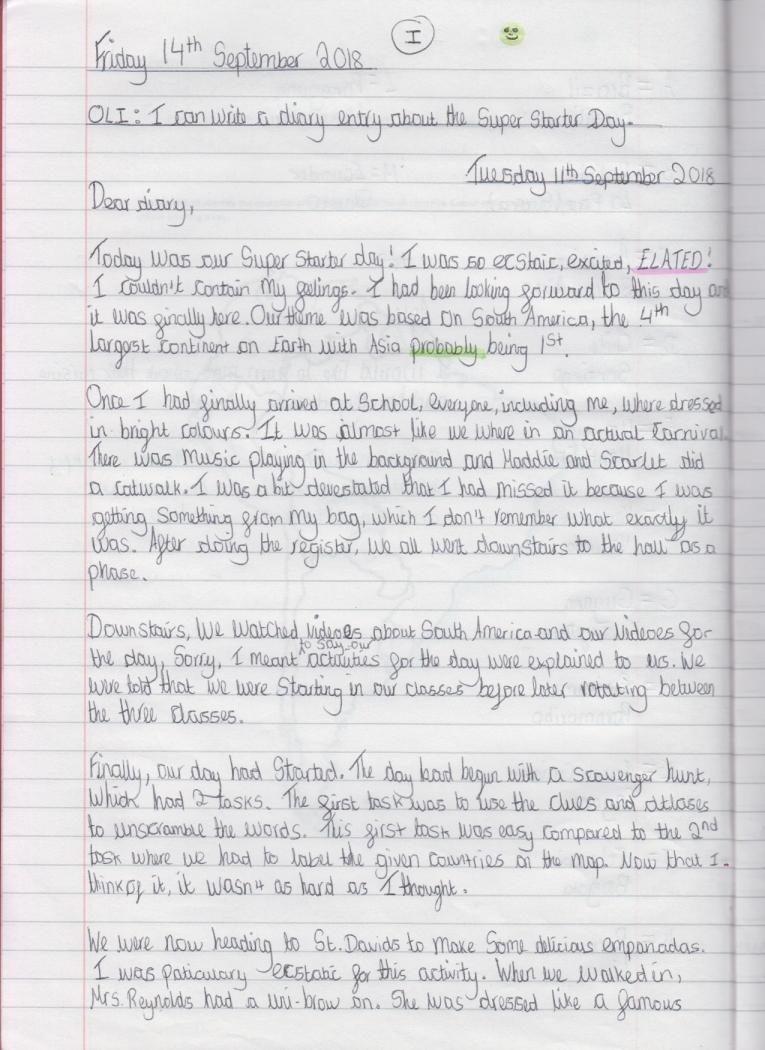 I
Friday 14th September 2018
OLI: I can write a diary entry about the Super Starter Day.
Tuesday 11th September 2018
Dear diary,
Today was our Super Starter day! I was so ecstaic, excited, ELATED!
I couldn't contain my feelings. I had been looking forward to this day and
it was finally here. Our theme was based on South America, the 4th
largest continent on Earth with Asia probably being 1st.
Once I had finally arrived at School, everyone, including me, where dressed
in bright colours. It was almost like we where in an actual Carnival.
There was music playing in the background and Maddie and Scarlet did
a catwalk. I was a bit devestated that I had missed it because I was
getting something from my bag, which I don't remember what exactly it
was. After doing the register, we all went downstairs to the hall as a
phase.
Downstairs, we watched videoes about South America and our videoes for
the day, Sorry, I meant to say our activities for the day were explained to us. We
were told that we were starting in our classes before later rotating between
the three classes.
Finally, our day had started. The day had begun with a scavenger hunt,
which had 2 tasks. The first task was to use the clues and atlases
to unscramble the words. This first task was easy compared to the 2nd
task where we had to label the given countries on the map. Now that I
think of it, it wasn't as hard as I thought.
We were now heading to St. Davids to make some delicious empanadas.
I was paticuary ecstatic for this activity. When we walked in,
Mrs. Reynolds had a uni-brow on. She was dressed like a famous